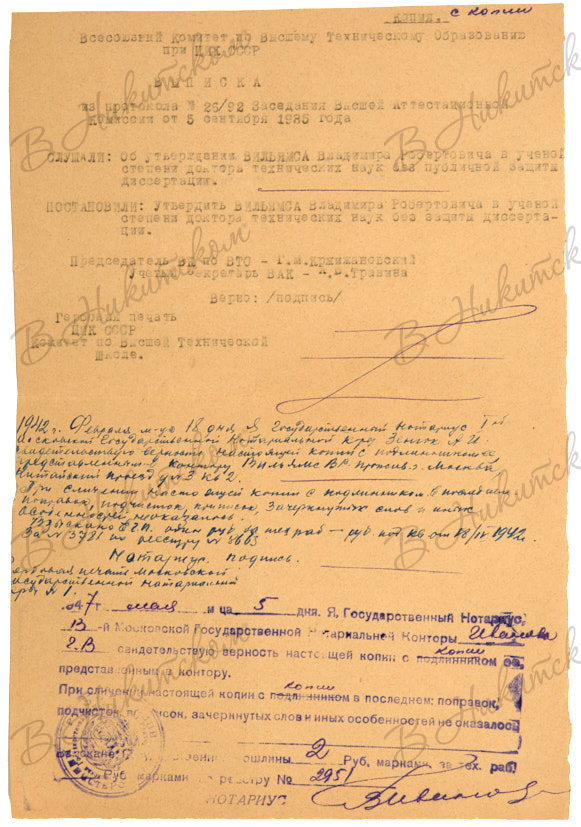 Копия. с копии
Всесоюзний Комитет по Высшему Техническому Образованию
при ЦИК СССР
ВЫПИСКА
из протокола № 26/92 Заседания Высшей Аттестационной
Комиссии от 5 сентября 1935 года
СЛУШАЛИ: Об утверждении ВИЛЬЯМСА Владимира Робертовича в ученой
степени доктора технических наук без публичной защиты
диссертации.
ПОСТАНОВИЛИ: Утвердить ВИЛЬЯМСА Владимира Робертовича в ученой
степени доктора технических наук без защиты диссерта-
ции.
Председатель по ВТО - Г.М. Кржижановский
Ученый Секретарь ВАК - Травина
Верно: /подпись/
Гербовая печать
ЦИК СССР
Комитет по Высшей Технической
Школе.
1942 г. Февраля м-ца 18 дня Я Государственный Нотариус
Московской Государственной Нотариальной к-ры
свидетельствую верность настоящей копии с подлинником
представленным в контору Вильямс В Р прожив. г. Москва
Китайский проезд д № 3 кв 2.
При сличении настоящей копии с подлинником в последнем
поправок, подчисток, приписок, зачеркнутых слов и иных
Особенностей не оказалось.
Взыскано руб
по реестру № 1942.
Нотариус. подпись.
печать Московской
Государственной Нотариальной
к-ры № 1.
947 г. мая м-ца 5 дня. Я, Государственный Нотариус
13-й Московской Государственной Нотариальной Конторы Иванова
свидетельствую верность настоящей копии с копии подлинником
представленным в контору.
При сличении настоящей копии с копии подлинником в последнем: поправок,
подчисток, приписок, зачеркнутых слов и иных особенностей не оказалось
Взыскано пошлины 2 Руб. марками, за тех. раб.
Руб. марками по реестру № 2951
НОТАРИУС
В. Никитском